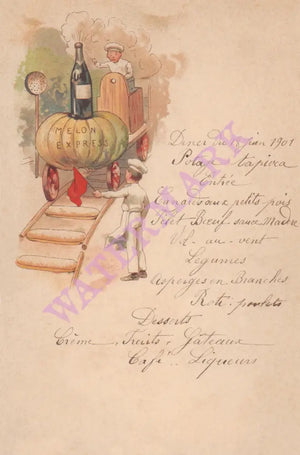 MELON
EXPRESS
Diner du juin 1901
Potage tapioca
Entrée
Canards aux petits pois
Filet Bœuf sauce Madère
Vol-au-vent
Légumes
Asperges en Branches
Roti poulets
Desserts
Crème, Fruits, Gâteaux
Café, Liqueurs
WATERMARK